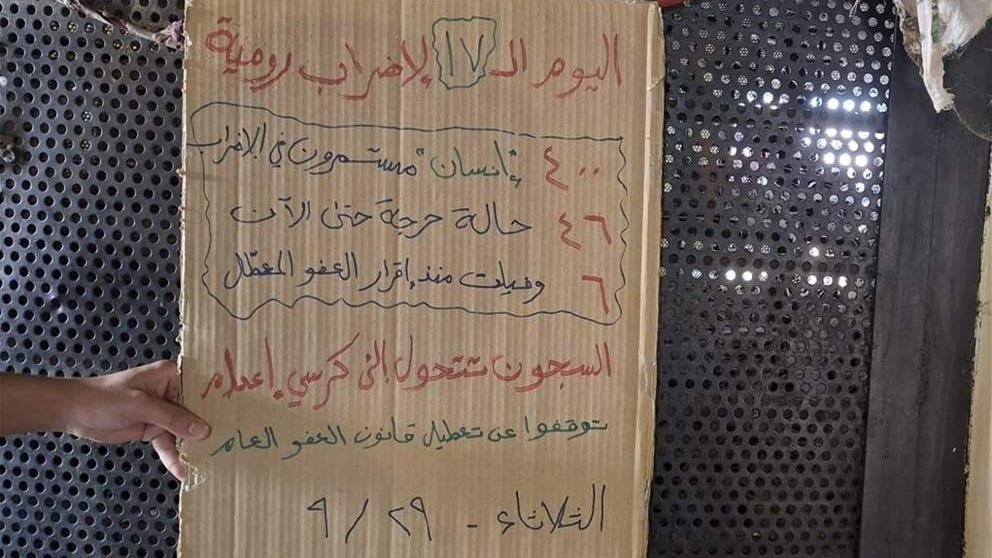 اليوم الـ ١٧ لإضراب رومية
٤٠٠ "إنسان" مستمرون في الاضراب
٤٦ حالة حرجة حتى الآن
٦ وفيات منذ إقرار العفو المعطّل
السجون تتحول إلى كرسي إعدام
توقفوا عن تعطيل قانون العفو العام
الثلاثاء - ٢٩ / ٩